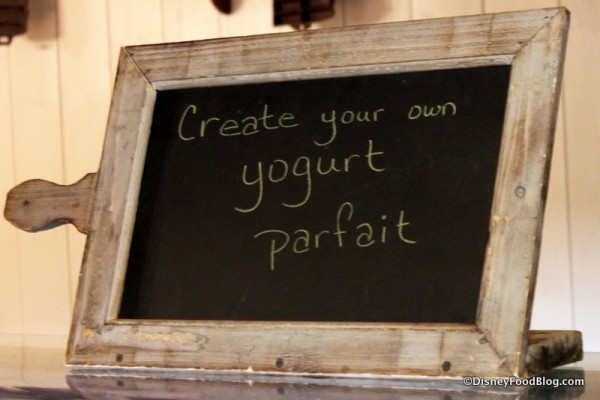 Create your own
yogurt
parfait
©DisneyFoodBlog.com